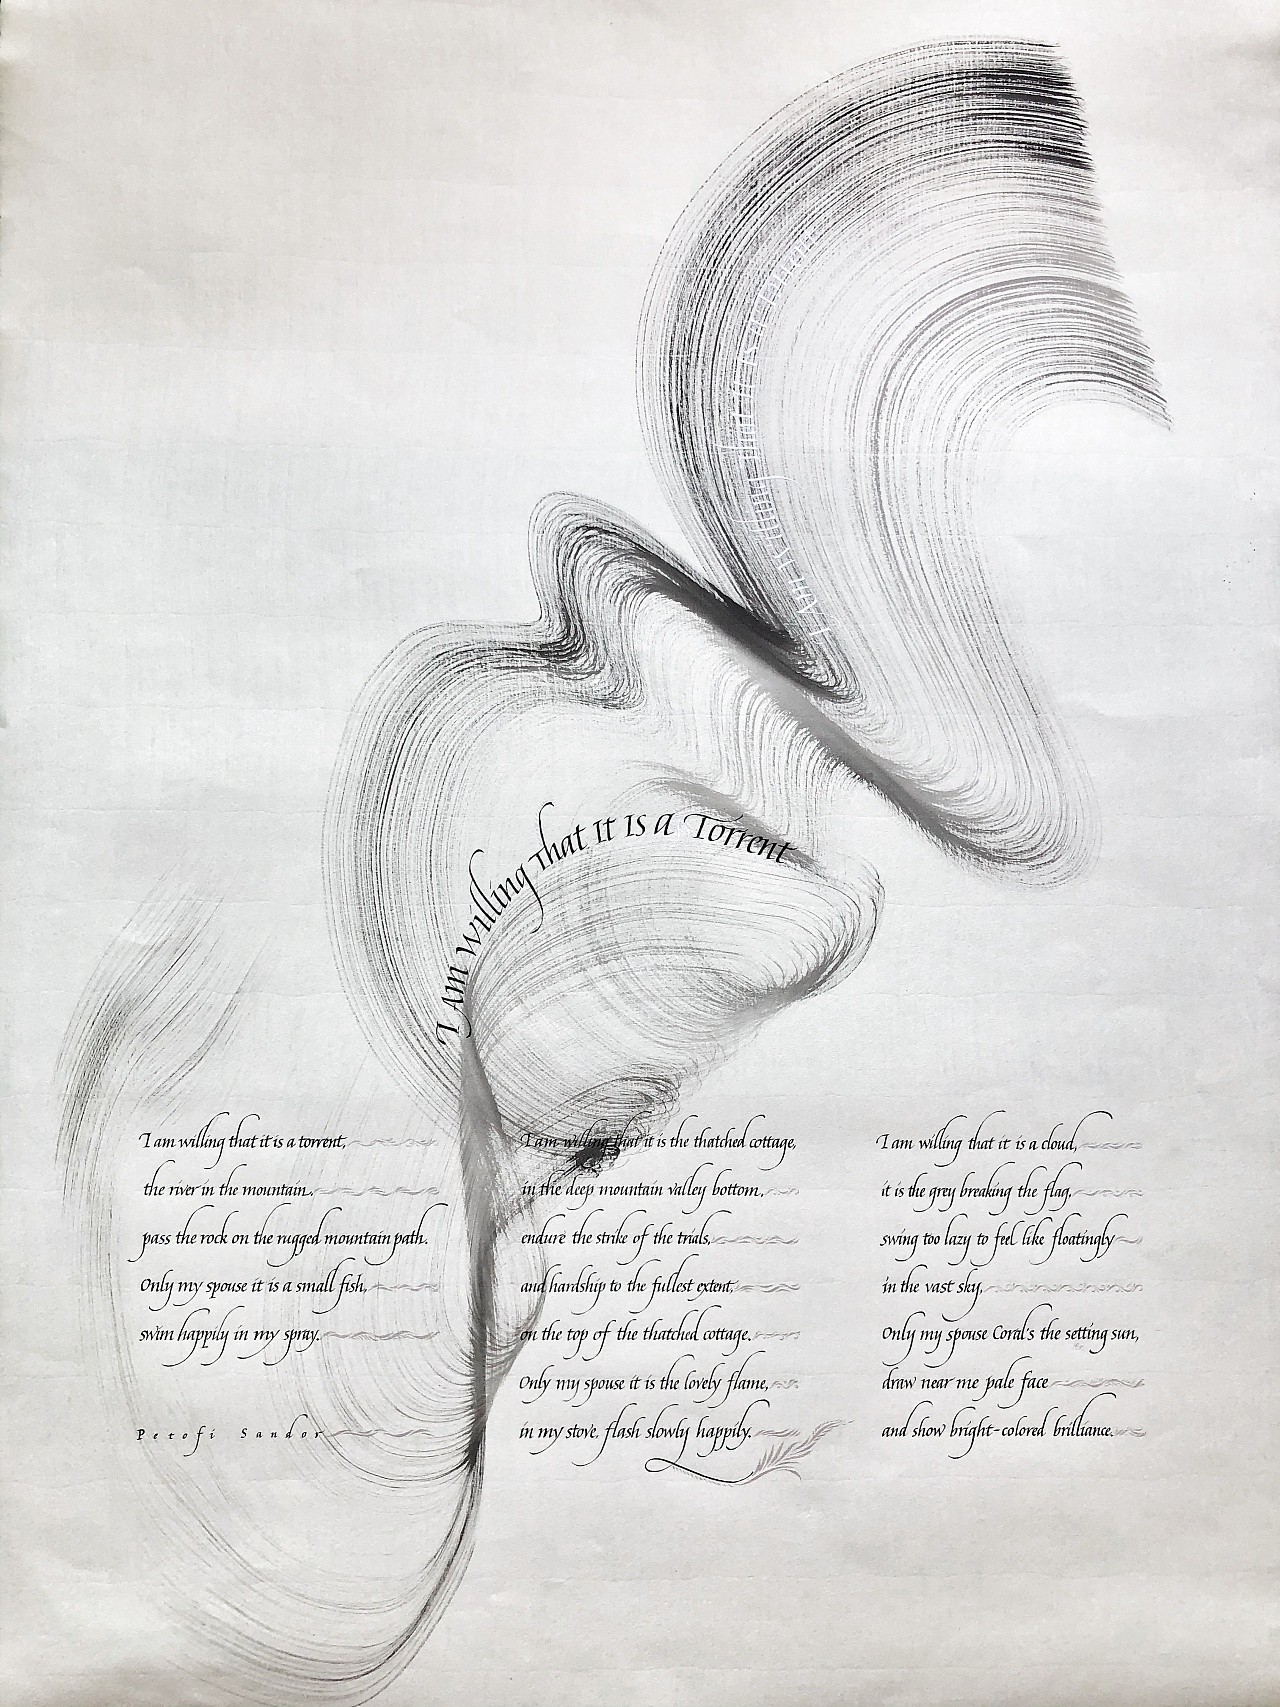 I am willing that it is a torrent
I Am willing that it is a Torrent
I am willing that it is a torrent,
the river in the mountain,
pass the rock on the rugged mountain path.
Only my spouse it is a small fish,
swim happily in my spray.
Petofi Sandor
I am willing that it is the thatched cottage,
in the deep mountain valley bottom,
endure the strike of the trials,
and hardship to the fullest extent,
on the top of the thatched cottage.
Only my spouse it is the lovely flame,
in my stove, flash slowly happily.
I am willing that it is a cloud,
it is the grey breaking the flag,
swing too lazy to feel like floatingly
in the vast sky,
Only my spouse Coral's the setting sun,
draw near me pale face
and show bright-colored brilliance.